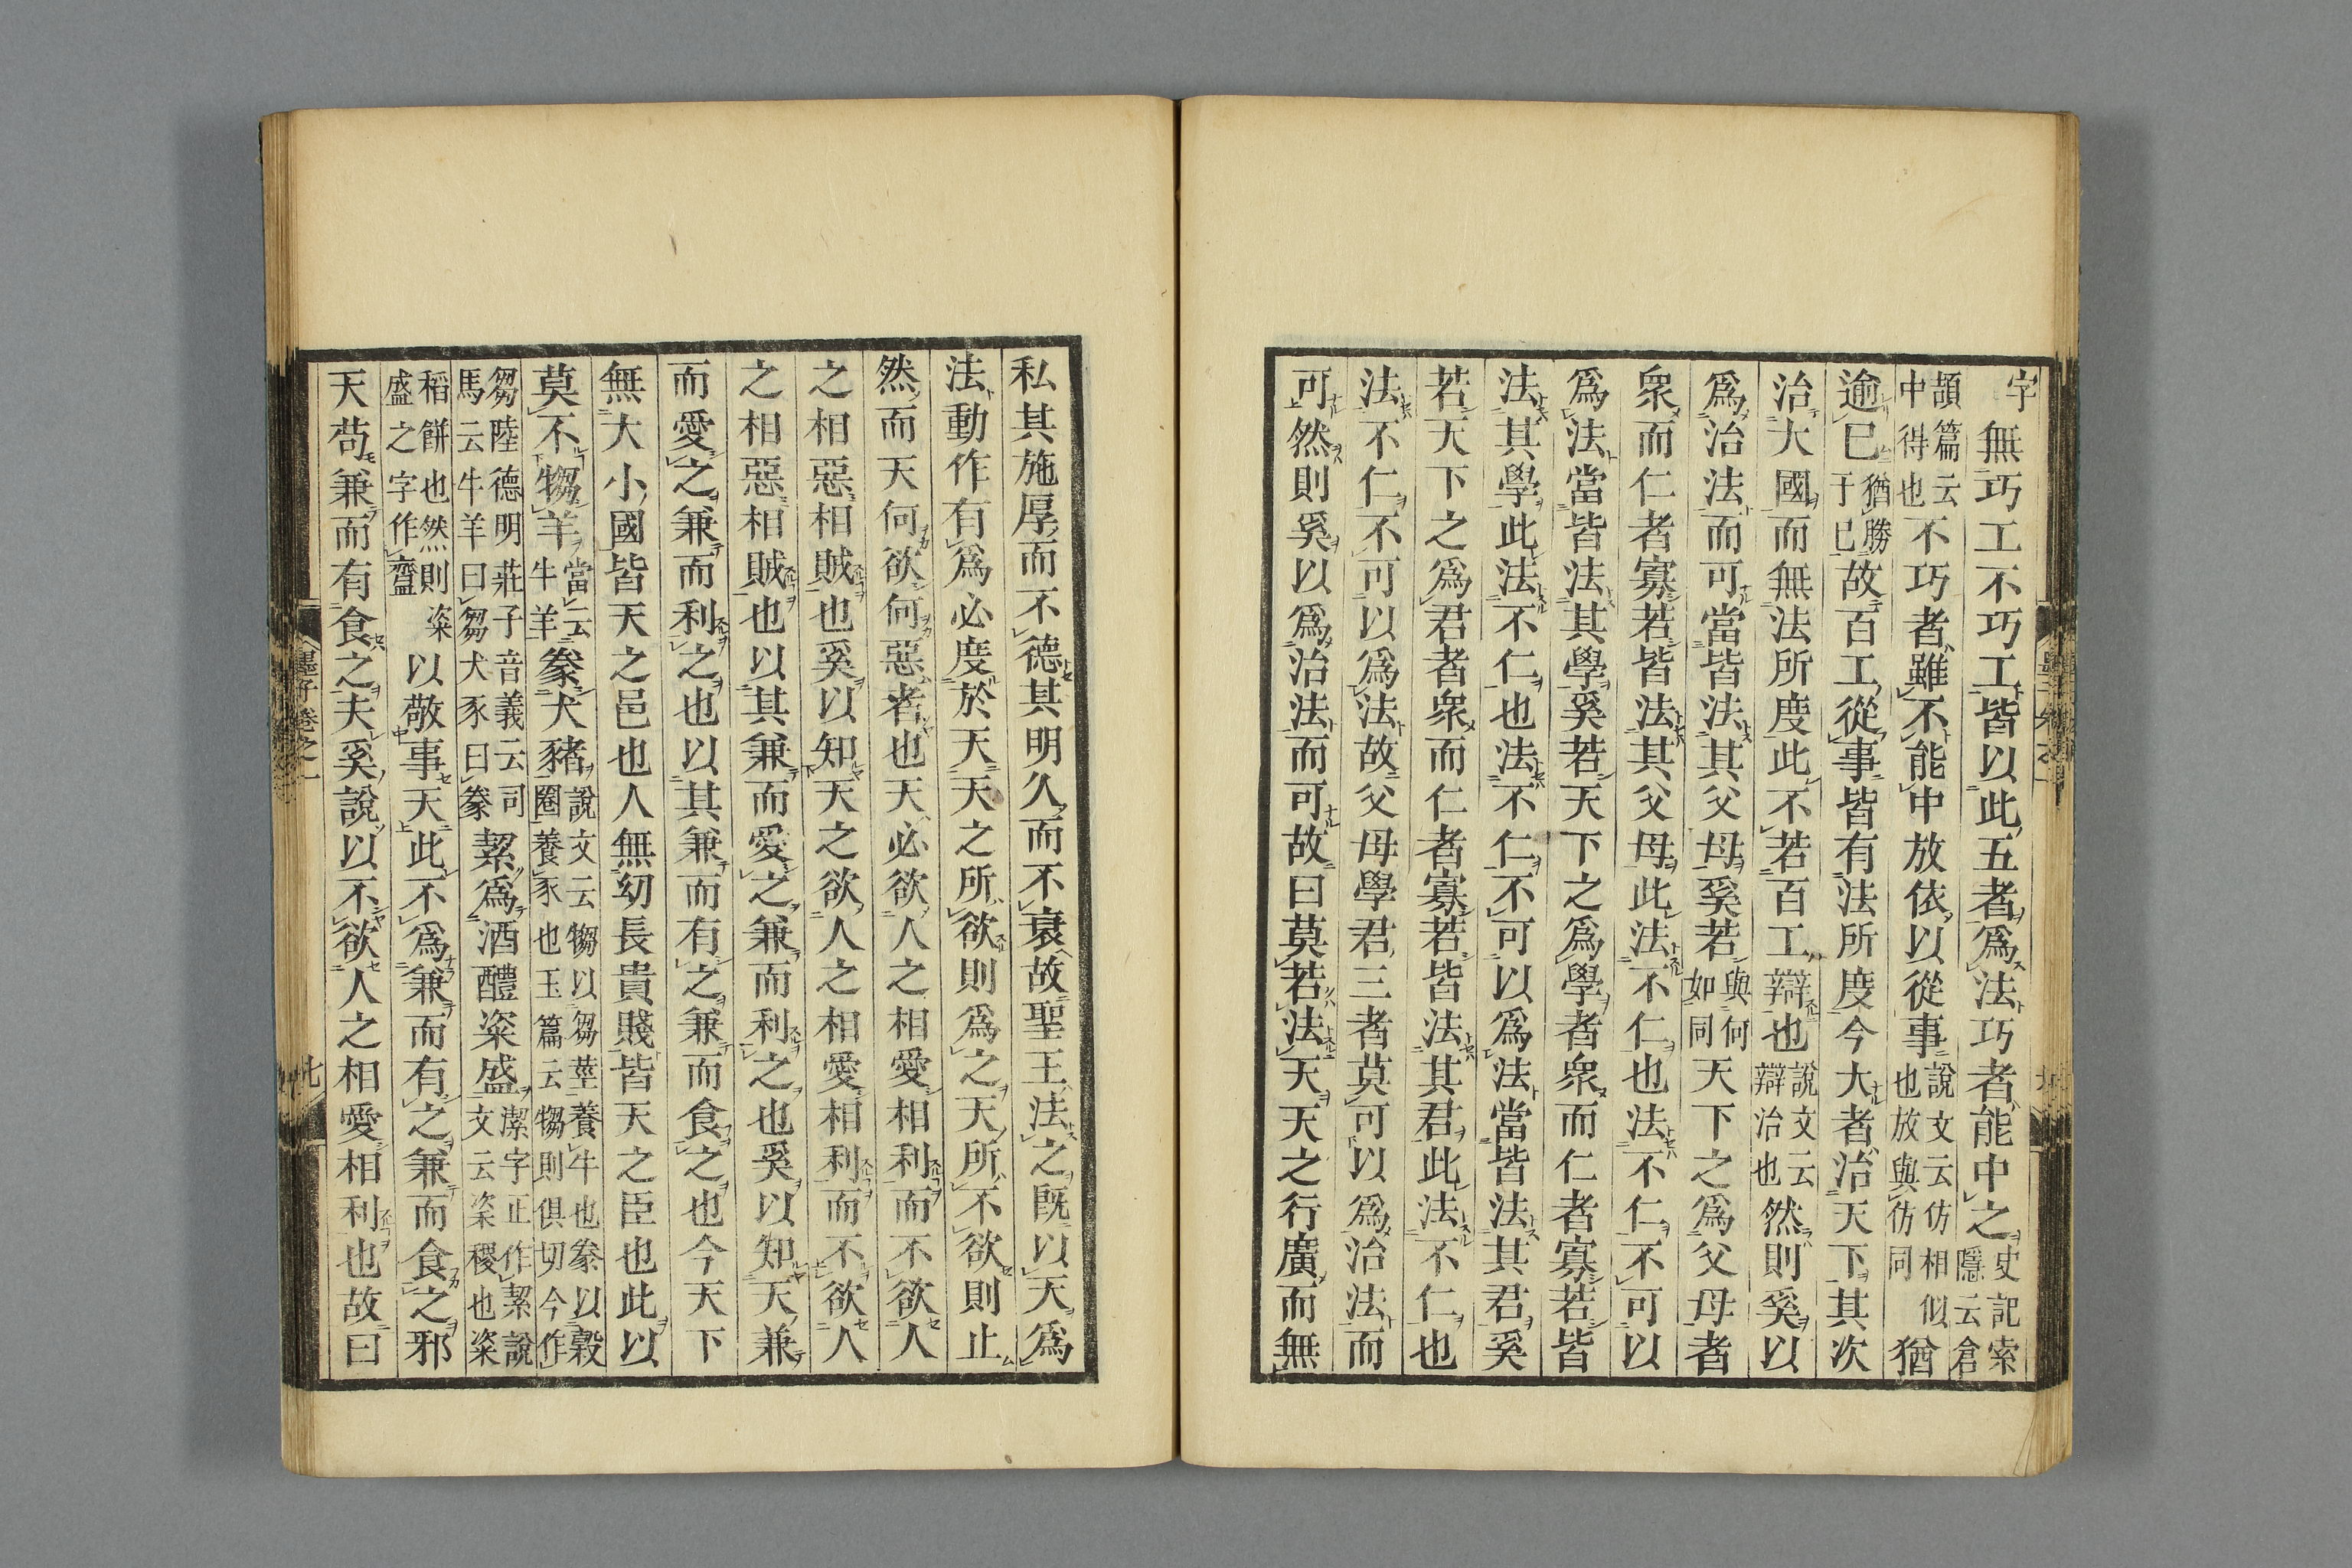 字無巧工不巧工皆以此五者爲法巧者能中之史記索隱云倉
頡篇云中得也不巧者雖不能中放依以從事說文云仿相似也放與仿同猶
逾已猶勝于已故百工從事皆有法所度今大者治天下其次
治大國而無法所度此不若百工辯也說文云辯治也然則奚以
爲治法而可當皆法其父母奚若與何如同天下之爲父母者
衆而仁者寡若皆法其父母此法不仁也法不仁不可以
爲法當皆法其學奚若天下之爲學者衆而仁者寡若皆
法其學此法不仁也法不仁不可以爲法當皆法其君奚
若天下之爲君者衆而仁者寡若皆法其君此法不仁也
法不仁不可以爲法故父母學君三者莫可以爲治法而
可然則奚以爲治法而可故曰莫若法天天之行廣而無
私其施厚而不德其明久而不衰故聖王法之既以天爲
法動作有爲必度於天天之所欲則爲之天所不欲則止
然而天何欲何惡者也天必欲人之相愛相利而不欲人
之相惡相賊也奚以知天之欲人之相愛相利而不欲人
之相惡相賊也以其兼而愛之兼而利之也奚以知天兼
而愛之兼而利之也以其兼而有之兼而食之也今天下
無大小國皆天之邑也人無幼長貴賤皆天之臣也此以
莫不犓羊當云牛羊豢犬豬說文云犓以芻莖養牛也豢以穀圈養豕也玉篇云犓則俱切今作
芻陸德明莊子音義云司馬云牛羊曰芻犬豕曰豢絜爲酒醴粢盛潔字正作絜說文云粢稷也粢
稻餅也然則粢盛之字作齍以敬事天此不爲兼而有之兼而食之邪
天苟兼而有食之夫奚說以不欲人之相愛相利也故曰
墨子卷之一
七